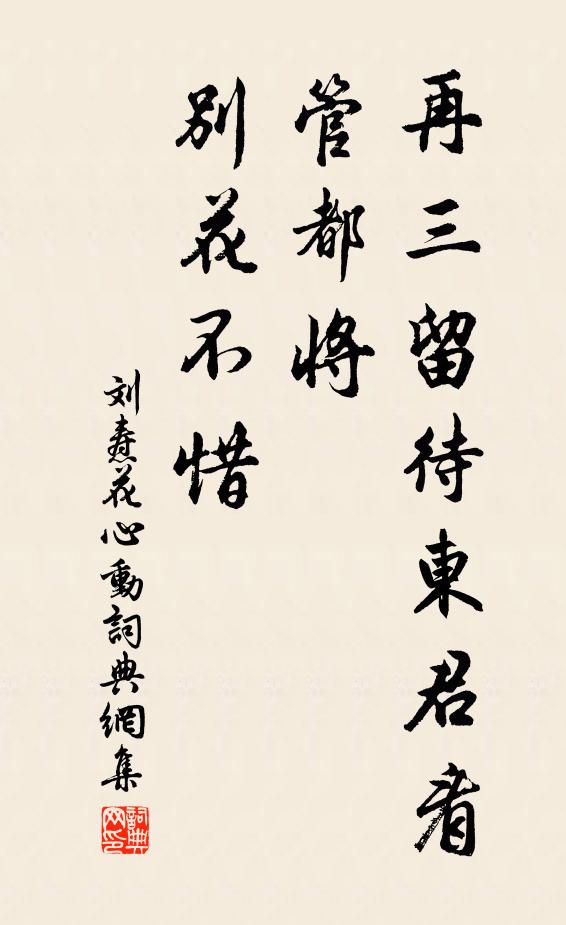 再三留待東君看
管都將
別花不惜
刘焘花心動詞典網集
詞典
网印